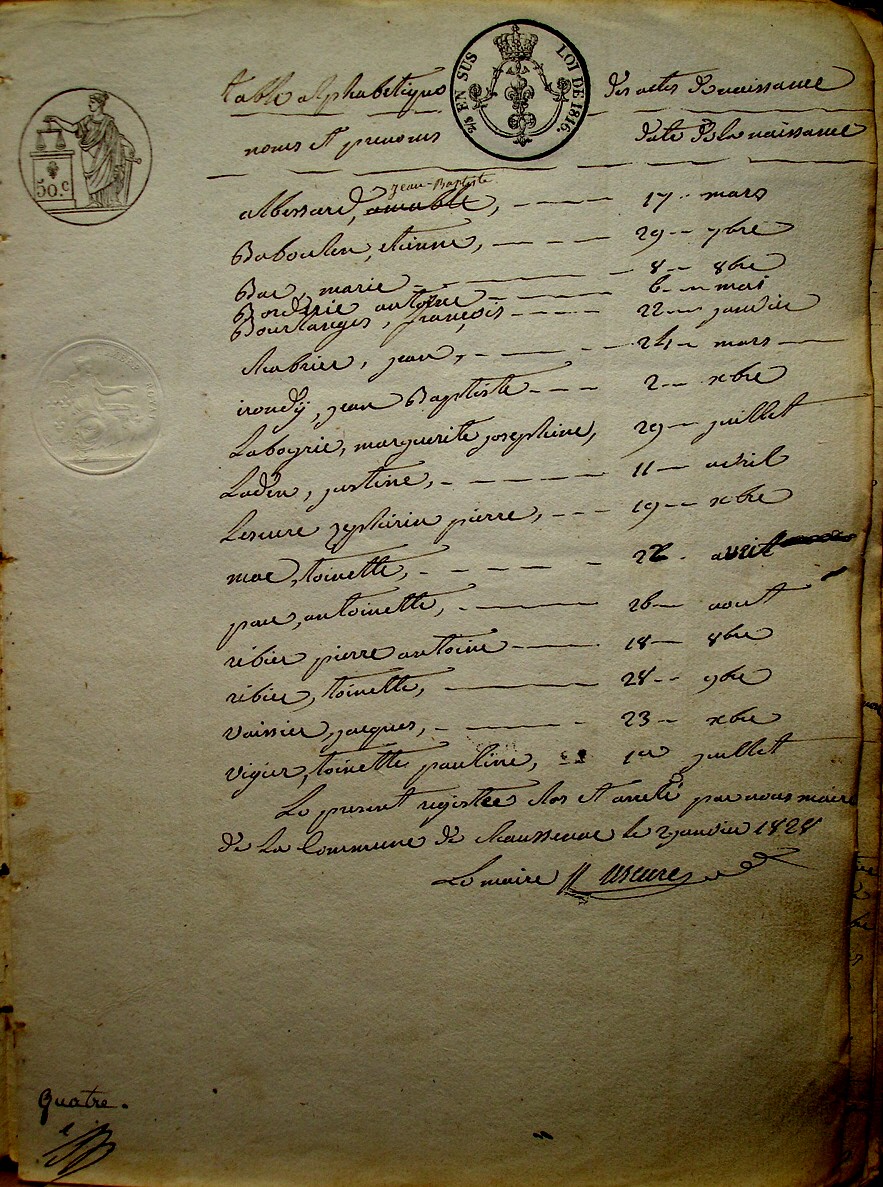 table alphabétique des actes de naissance
2/5 EN SUS LOI DE 1816.
50.c
noms et prenoms date de la naissance
jean-Baptiste
albessard, amable, 17 mars
Baboulen, etienne, 29 7bre
Bac, marie 8 8bre
Borderie antoine 6 mai
Bourlanges, françois 22 janvier
Chabrier, jean, 24 mars
irondÿ, jean Baptiste 2 xbre
Laboyrie, marguerite josephine, 29 juillet
Laden, justine, 11 avril
Lescure zephirin pierre, 19 xbre
mac, toinette, 22 avril
pau, antoinette, 26 aout
ribier pierre antoine 18 8bre
ribier, toinette, 28 9bre
Vaissier, jacques, 23 xbre
Vigier, toinette pauline, 1er juillet
Le present registre clos et arreté par nous maire
de La Commune de Chaussenac le 2 janvier 1828
Le maire Lescure
Quatre.